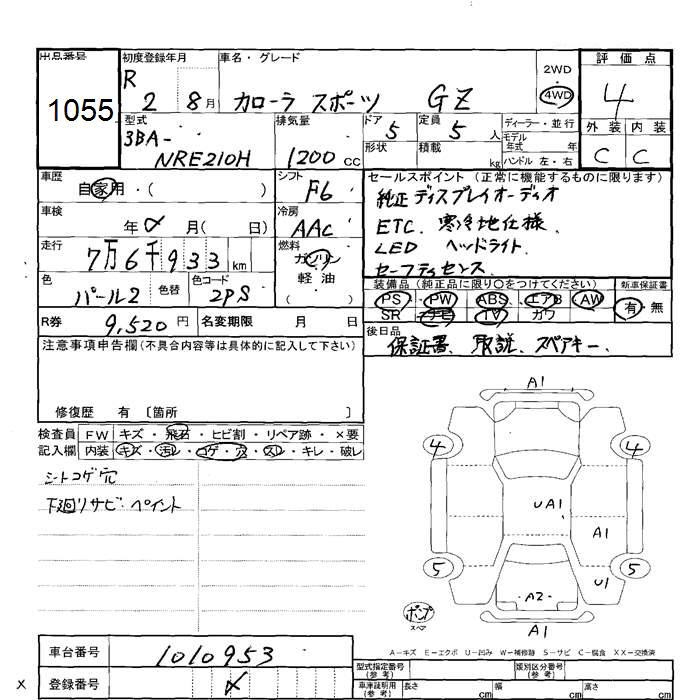 出品番号 初度登録年月 車名・グレード 2WD 評価点
1055 R 2 8月 カローラ スポーツ GZ 4WD 4
型式 排気量 ドア 5 定員 5人 ディーラー・並行 外装 内装
3BA- NRE210H 1200cc 形状 積載 kg モデル年式 年 C C
ハンドル 左・右
車歴 シフト セールスポイント(正常に機能するものに限ります)
自家用・( ) F6 純正ディスプレイオーディオ
車検 年 月( 日) 冷房 AAC ETC. 寒冷地仕様.
走行 7万6千933km 燃料 ガソリン LED ヘッドライト.
色 パール2 色替 色コード 2PS 軽油 ( ) セーフティセンス.
装備品(純正品に限り○をつけてください) 新車保証書
PS・PW・ABS・エアB・AW 有・無
R券 9,520円 名変期限 月 日 SR TV カワ
注意事項申告欄(不具合内容等は具体的に記入して下さい) 後日品
保証書、取説、スペアキー.
修復歴 有 〔箇所 〕
A1
検査員 FW キズ・飛石・ヒビ割・リペア跡・×要
記入欄 内装 キズ・汚レ・コゲ・穴・スレ・キレ・破レ
4 4
シートコゲ穴
下廻りサビ・ペイント
UA1
A1
5 5
U1
A2
ポンプ
スペア
A1
A-キズ E-エクボ U-凹み W-補修跡 S-サビ C-腐食 XX-交換済
車台番号 1010953
型式指定番号(参考) 類別区分番号(参考)
登録番号
車庫証明用(参考) 長さ cm 幅 cm 高さ cm
X